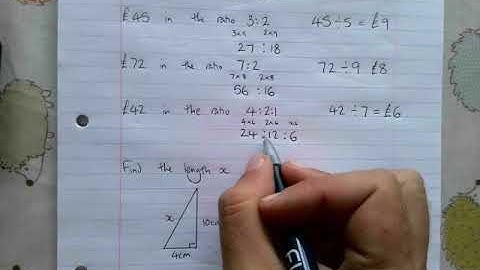 £45 in the ratio 3:2 45÷5 = £9
3x9 2x9
27 : 18
£72 in the ratio 7:2 72÷9 £8
7x8 2x8
56 : 16
£42 in the ratio 4:2:1 42÷7 = £6
4x6 2x6 x6
24 : 12 : 6
Find the length x
x 10cm
4cm